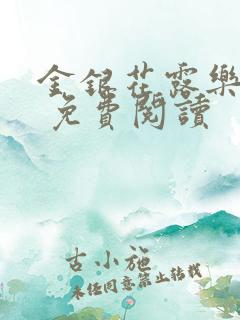 金銀花露樂
免費閱讀
古小施
未经同意禁止转载